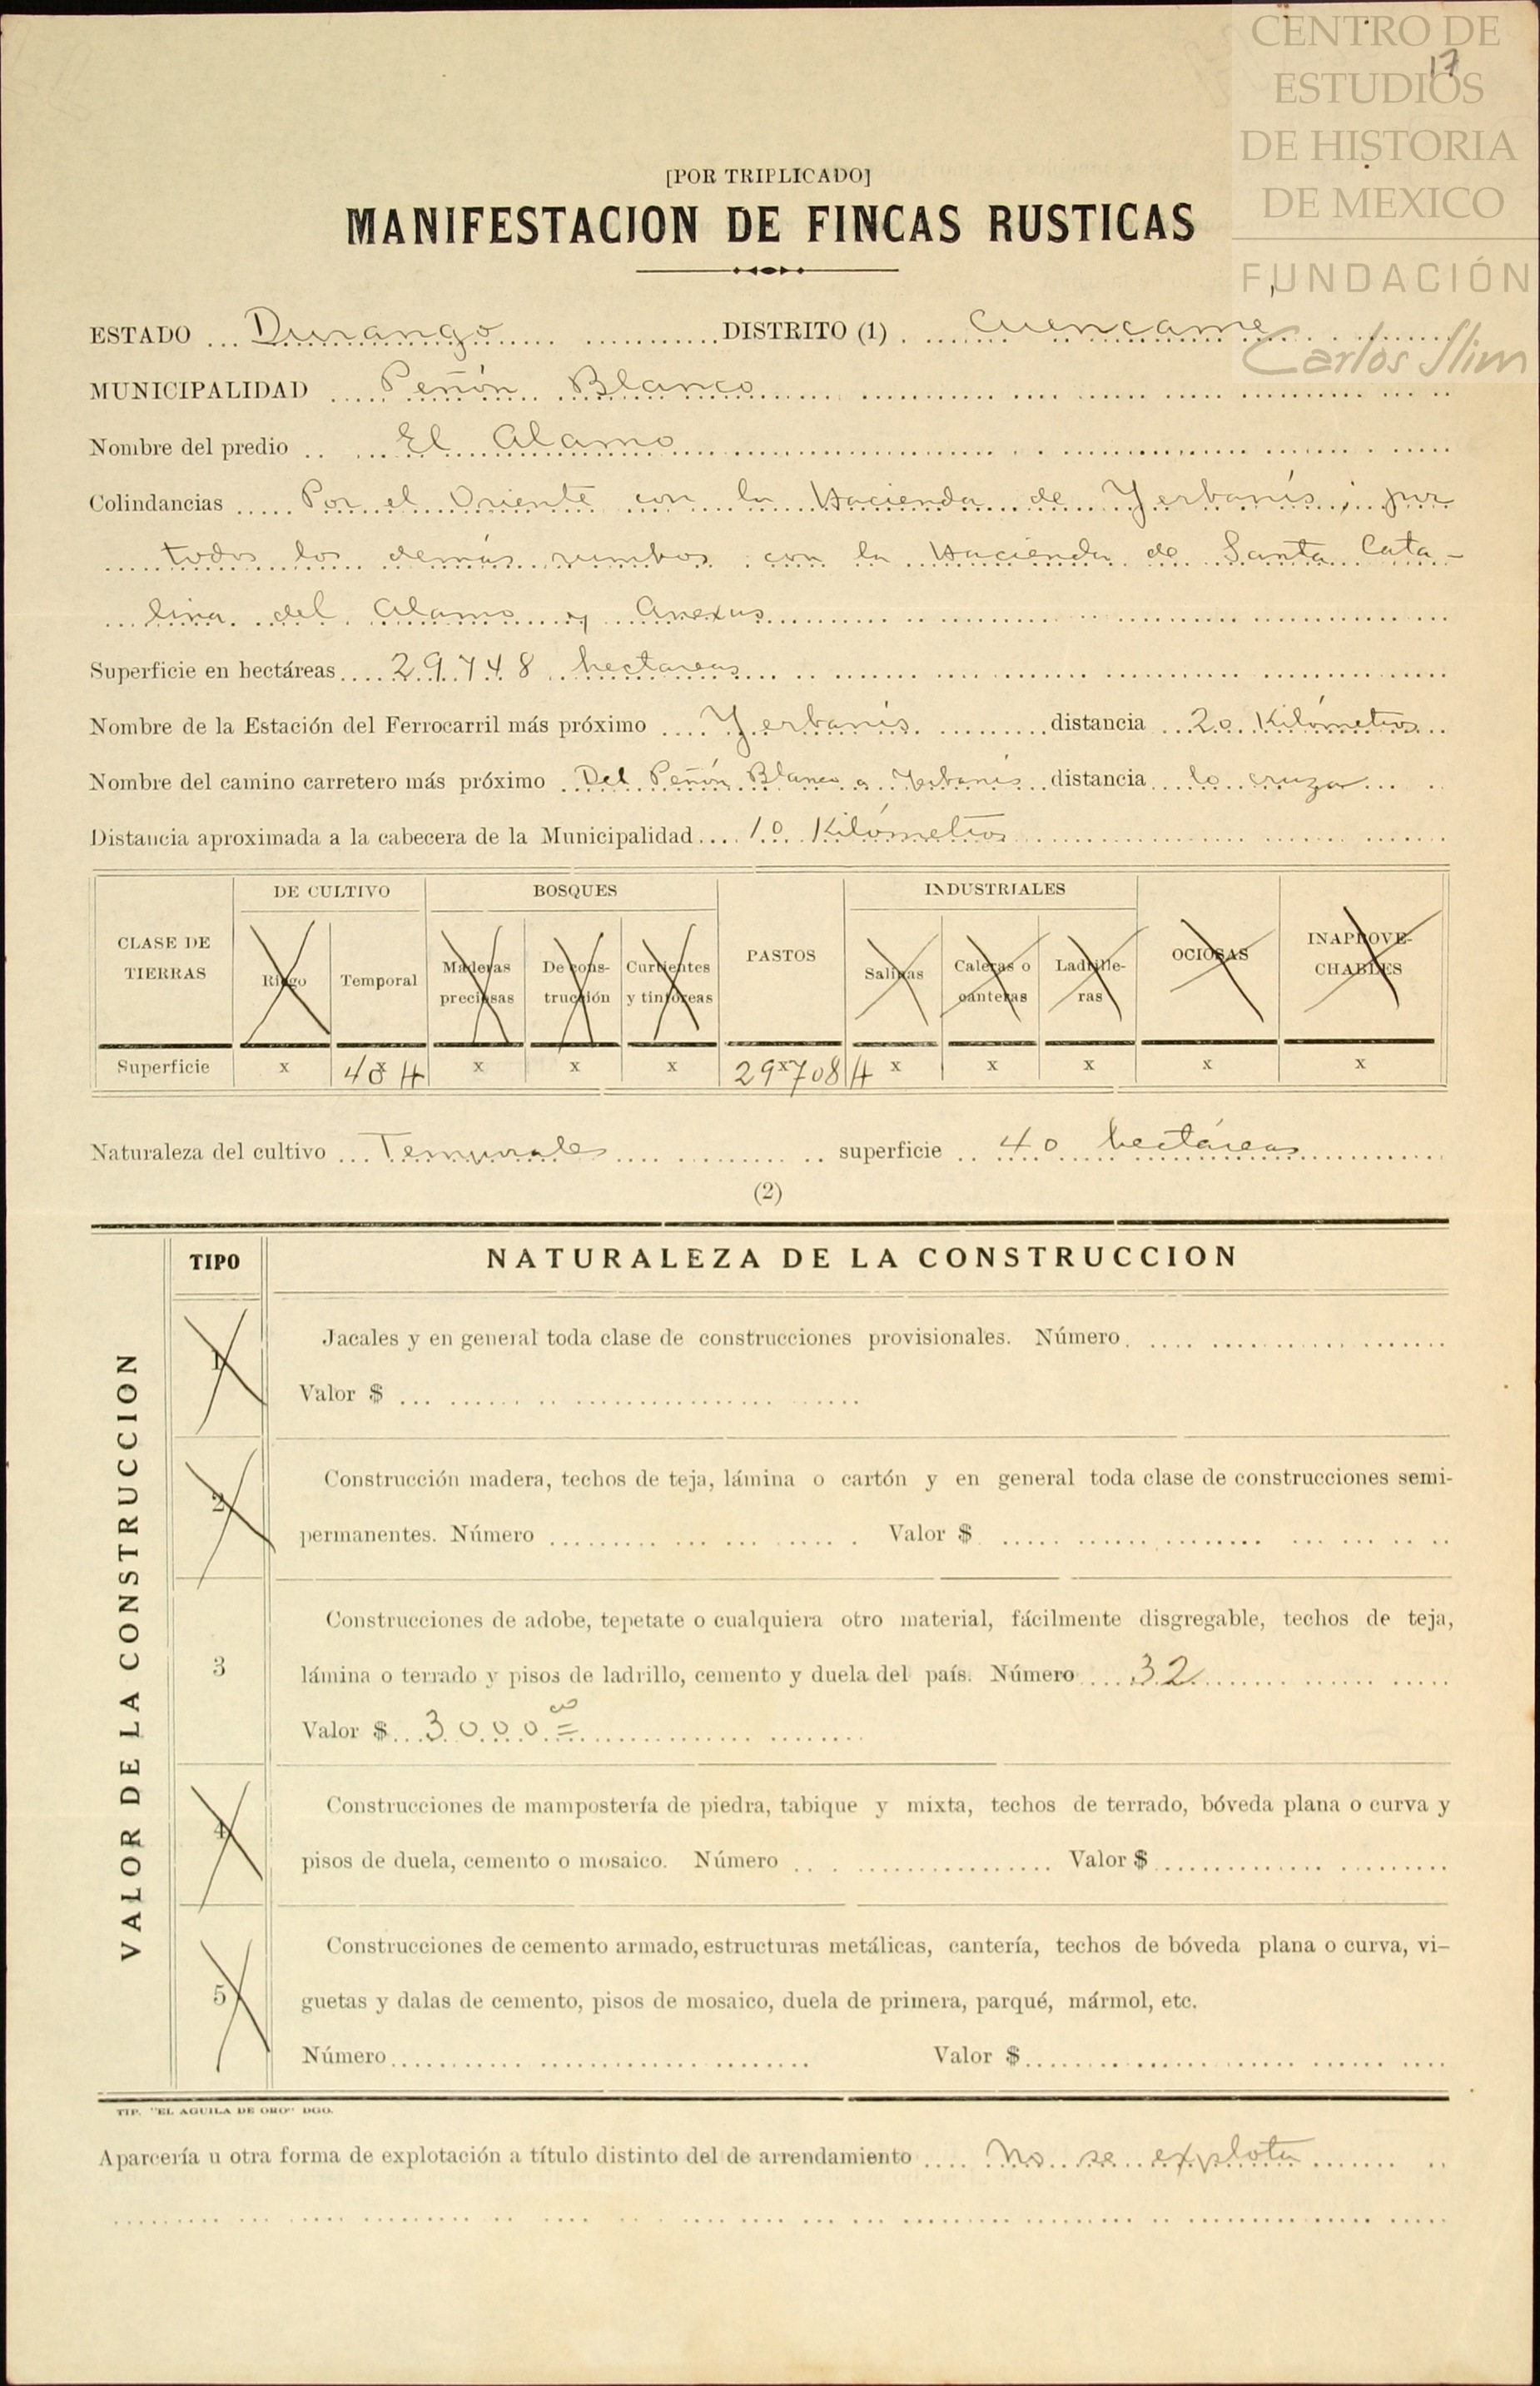 CENTRO DE
ESTUDIOS
DE HISTORIA
DE MEXICO
FUNDACIÓN
Carlos Slim
17
[POR TRIPLICADO]
MANIFESTACION DE FINCAS RUSTICAS
ESTADO Durango DISTRITO (1) Cuencame
MUNICIPALIDAD Peñón Blanco
Nombre del predio El Alamo
Colindancias Por el Oriente con la Hacienda de Yerbanís; por
todos los demás rumbos con la Hacienda de Santa Cata-
lina del Alamo y Anexas
Superficie en hectáreas 29748 hectareas
Nombre de la Estación del Ferrocarril más próximo Yerbanís distancia 20 Kilómetros
Nombre del camino carretero más próximo Del Peñón Blanco a Yerbanís distancia lo cruza
Distancia aproximada a la cabecera de la Municipalidad 10 Kilómetros
DE CULTIVO BOSQUES INDUSTRIALES
CLASE DE TIERRAS Riego Temporal Maderas preciosas De construcción Curtientes y tintóreas PASTOS Salinas Caleras o canteras Ladrilleras OCIOSAS INAPROVE-CHABLES
Superficie x 40 H x x x 29708 H x x x x x
Naturaleza del cultivo Temporales superficie 40 hectáreas
(2)
VALOR DE LA CONSTRUCCION
TIPO NATURALEZA DE LA CONSTRUCCION
1 Jacales y en general toda clase de construcciones provisionales. Número
Valor $
2 Construcción madera, techos de teja, lámina o cartón y en general toda clase de construcciones semi-
permanentes. Número Valor $
Construcciones de adobe, tepetate o cualquiera otro material, fácilmente disgregable, techos de teja,
3 lámina o terrado y pisos de ladrillo, cemento y duela del país. Número 32
Valor $ 3000 00
4 Construcciones de mampostería de piedra, tabique y mixta, techos de terrado, bóveda plana o curva y
pisos de duela, cemento o mosaico. Número Valor $
Construcciones de cemento armado, estructuras metálicas, cantería, techos de bóveda plana o curva, vi-
5 guetas y dalas de cemento, pisos de mosaico, duela de primera, parqué, mármol, etc.
Número Valor $
TIP. "EL AGUILA DE ORO" DGO.
Aparcería u otra forma de explotación a título distinto del de arrendamiento No se explota